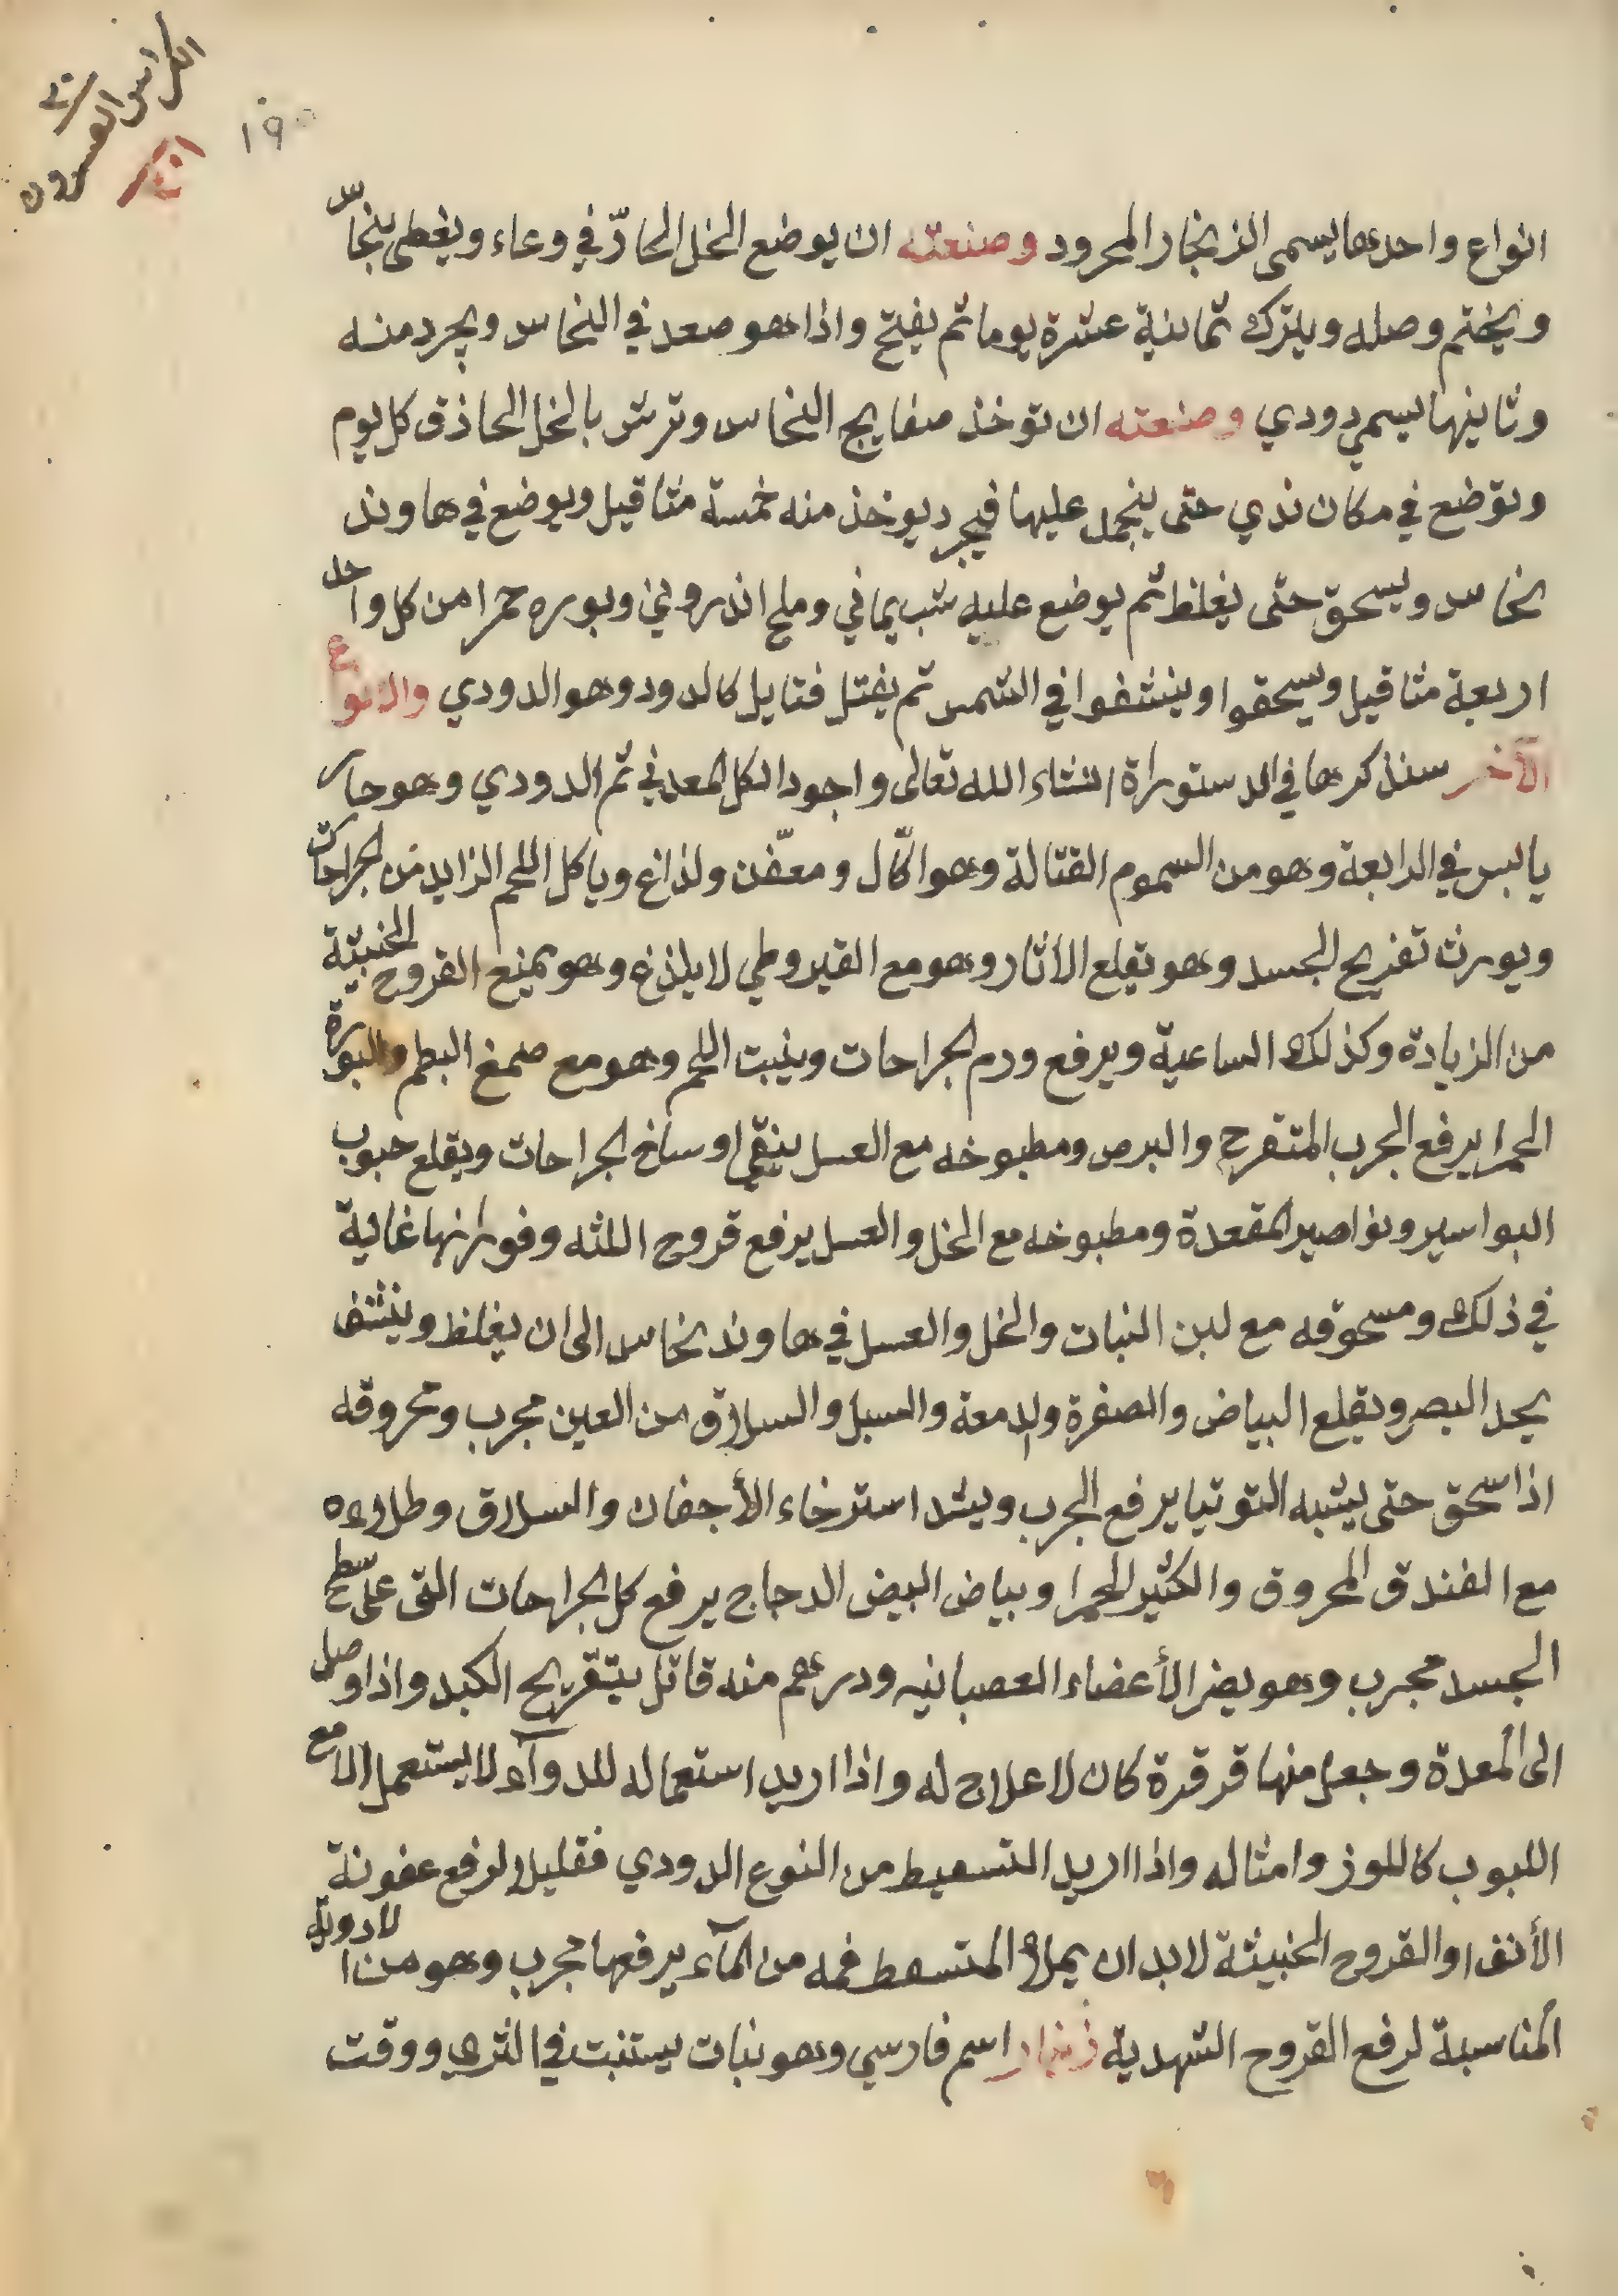 الكراس العشرون
١٩٥
انواع واحدها يسمى الزنجار المجرود وصنعته ان يوضع الخل الحادّ في وعاء ويغطى بنحاس
ويختم وصله ويترك ثمانية عشرة يوما ثم يفتح واذا هو صعد في النحاس ويجرد منه
وثانيها يسمي دودي وصنعته ان توخذ صفايح النحاس وترش بالخل الحاذق كل يوم
وتوضع في مكان ندي حتى ينجمد عليها فيجرد يوخذ منه خمسة مثاقيل ويوضع في هاوند
نحاس ويسحق حتى يغلظ ثم يوضع عليه شب يماني وملح اندروني وبوره حمرا من كل واحد
اربعة مثاقيل ويسحقوا وينشفوا في الشمس ثم يفتل فتايل كالدود وهو الدودي والانواع
الآخر سنذكرها في الدستوراة انشاء الله تعالى واجود الكل المعدني ثم الدودي وهو حار
يابس في الرابعة وهو من السموم القتالة وهو اكّال ومعفّن ولذاع وياكل اللحم الزايد من الجراحات
ويورث تقريح الجسد وهو يقلع الآثار وهو مع القيروطي لا يلذغ وهو يمنع القروح الخبيثة
من الزيادة وكذلك الساعية ويرفع ورم الجراحات وينبت اللحم وهو مع صمغ البطم والبورة
الحمرا يرفع الجرب المتقرح والبرص ومطبوخه مع العسل ينقي اوساخ الجراحات ويقلع حبوب
البواسير ونواصير المقعدة ومطبوخه مع الخل والعسل يرفع قروح اللثه وفورانها غاية
في ذلك ومسحوقه مع لبن النبات والخل والعسل في هاوند نحاس الى ان يغلظ وينشف
يحد البصر ويقلع البياض والصفرة والدمعة والسبل والسلاق من العين مجرب ومحروقه
اذا سحق حتى يشبه التوتيا يرفع الجرب ويشد استرخاء الأجفان والسلاق وطلاوه
مع الفندق المحروق والكثير الحمرا وبياض البيض الدجاج يرفع كل الجراحات التي على سطح
الجسد مجرب وهو يضر الأعضاء العصبانيه ودرهم منه قاتل يتقريح الكبد واذا وصل
الى المعدة وجعل منها قرقرة كان لا علاج له واذا اريد استعماله للدوآء لا يستعمل الا مع
اللبوب كاللوز وامثاله واذا اريد التسعيط من النوع الدودي فقليل لرفع عفونة
الأنف او القروح الخبيثة لا بد ان يملا المتسعط فمه من المآء يرفعها مجرب وهو من الادوية
المناسبة لرفع القروح الشهدية زنبار اسم فارسي وهو نبات يستنبت في الثرى ووقت